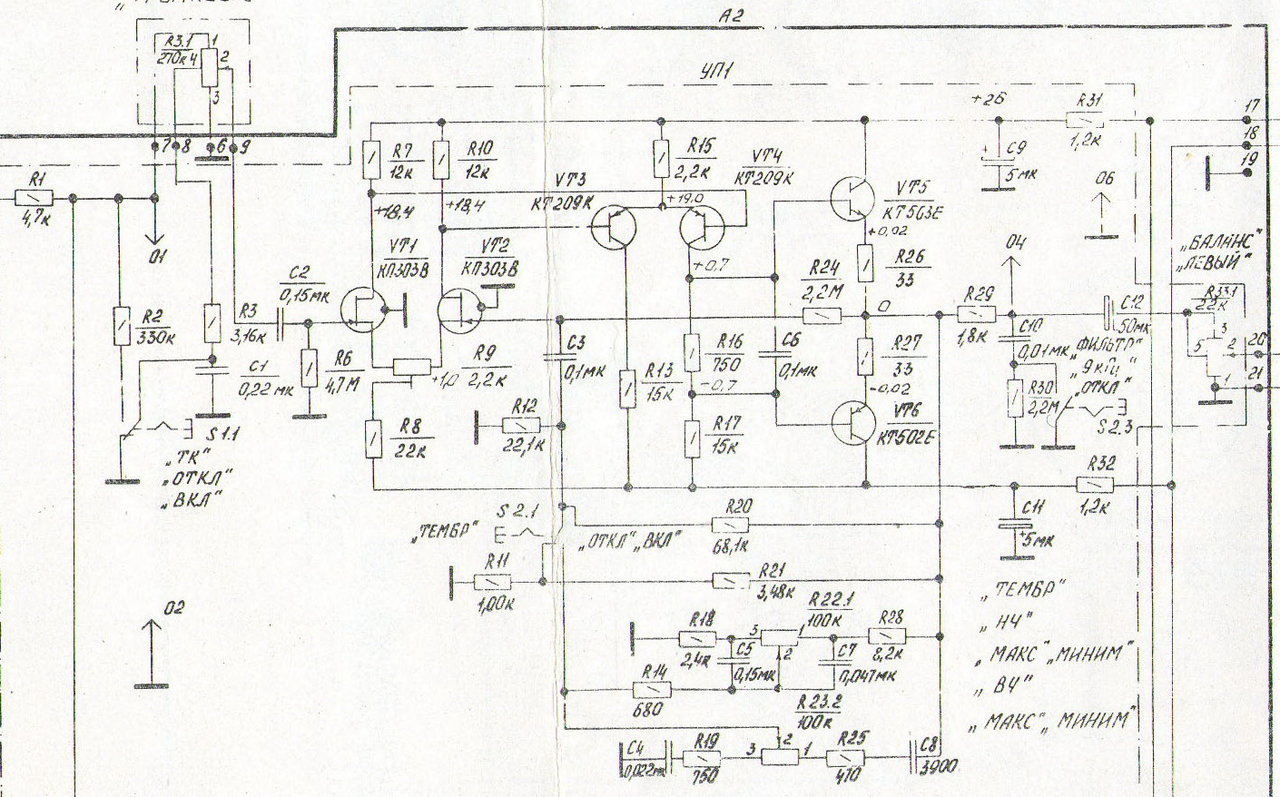 A2
R3.1
270к
4
1
2
3
7
8
6
9
УП1
+26
R31
1,2к
17
18
19
R1
4,7к
R7
12к
R10
12к
R15
2,2к
VT4
КТ209К
VT3
КТ209К
+18,4
+18,4
+19,0
VT5
КТ503Е
+0,02
C9
+
5мк
06
01
VT1
КП303В
VT2
КП303В
+0,7
R24
2,2М
R26
33
04
„БАЛАНС"
„ЛЕВЫЙ"
R33.1
22к
C2
0,15мк
R2
330к
R3
3,16к
C1
0,22мк
R6
4,7М
R9
2,2к
+1,0
C3
0,1мк
0
R29
1,8к
C12
50мк
C10
0,01мк
„ФИЛЬТР"
9кГц
„ОТКЛ"
3
5
2
1
20
21
R13
15к
R16
750
C6
0,1мк
R27
33
-0,7
-0,02
R30
2,2М
S2.3
S1.1
„ТК"
„ОТКЛ"
„ВКЛ"
R8
22к
R12
22,1к
R17
15к
VT6
КТ502Е
R32
1,2к
C11
+
5мк
„ТЕМБР"
S2.1
„ОТКЛ" „ВКЛ"
R20
68,1к
R11
1,00к
R21
3,48к
02
R18
2,4к
C5
0,15мк
3
R22.1
100к
1
2
C7
0,047мк
R28
8,2к
R14
680
R23.2
100к
C4
0,022мк
R19
750
3
2
1
R25
470
C8
3900
„ТЕМБР"
„НЧ"
„МАКС" „МИНИМ"
„ВЧ"
„МАКС" „МИНИМ"